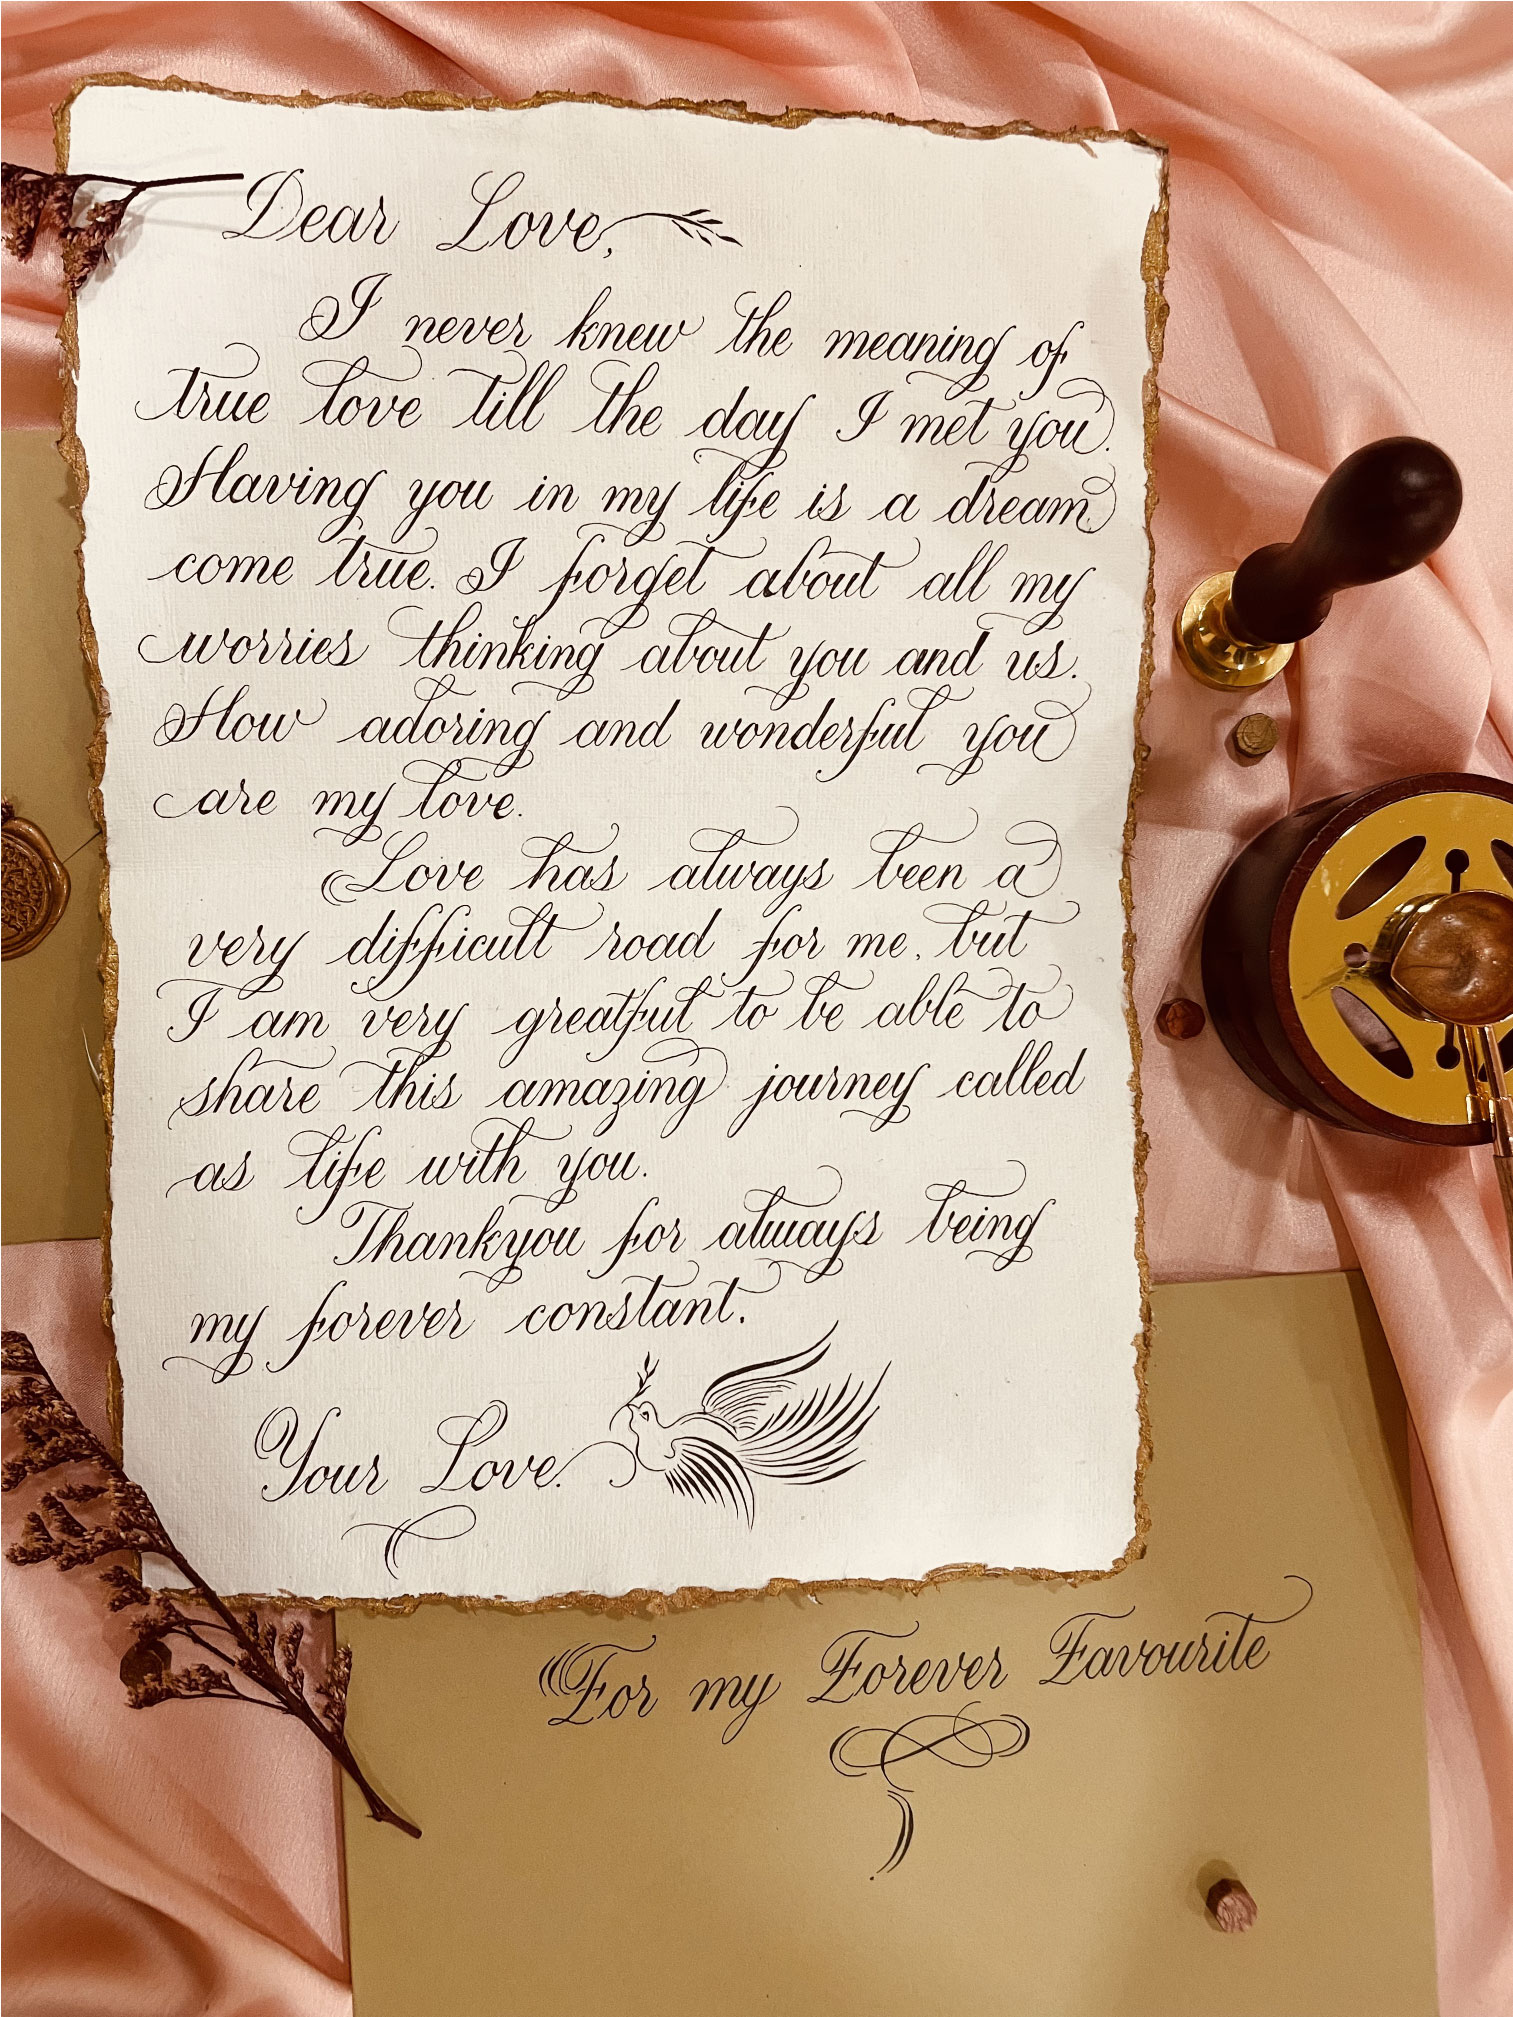 Dear Love,
I never knew the meaning of
true love till the day I met you.
Having you in my life is a dream
come true. I forget about all my
worries thinking about you and us.
How adoring and wonderful you
are my love.
Love has always been a
very difficult road for me, but
I am very greatful to be able to
share this amazing journey called
as life with you.
Thankyou for always being
my forever constant.
Your Love.
For my Forever Favourite